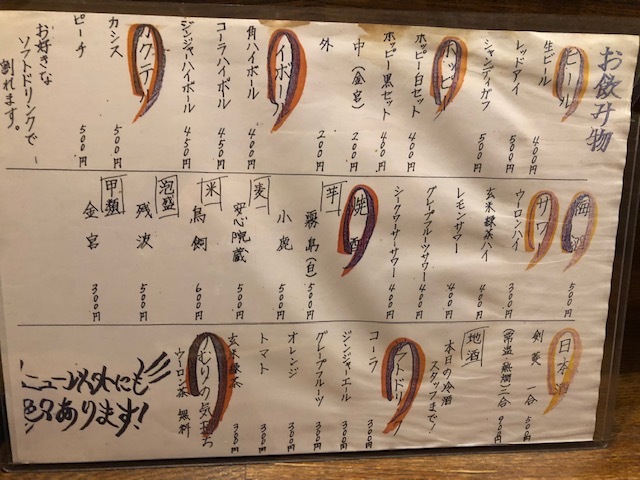 お飲み物
ビール
生ビール 400円
レッドアイ 500円
シャンディガフ 500円
ホッピー
ホッピー白セット 400円
ホッピー黒セット 400円
中(金宮) 200円
外 200円
ハイボール
角ハイボール 400円
コーラハイボール 450円
ジンジャハイボール 450円
カクテル
カシス 500円
ピーチ 500円
お好きな
ソフトドリンクで
割れます。
梅酒 500円
サワー
ウーロンハイ 300円
玄米緑茶ハイ 400円
レモンサワー 400円
グレープフルーツサワー 400円
シークワーサーサワー 400円
焼酎
芋
霧島(白) 500円
小鹿 500円
麦
安心院蔵 500円
米
鳥飼 600円
泡盛
残波 500円
甲類
金宮 300円
日本酒
剣菱 一合 500円
(常温・熱燗) 二合 900円
地酒
本日の冷酒
スタッフまで!
ソフトドリンク
コーラ 300円
ジンジャーエール 300円
グレープフルーツ 300円
オレンジ 300円
トマト 300円
玄米緑茶 300円
の気持ち
ウーロン茶 無料
メニュー以外にも
あります!